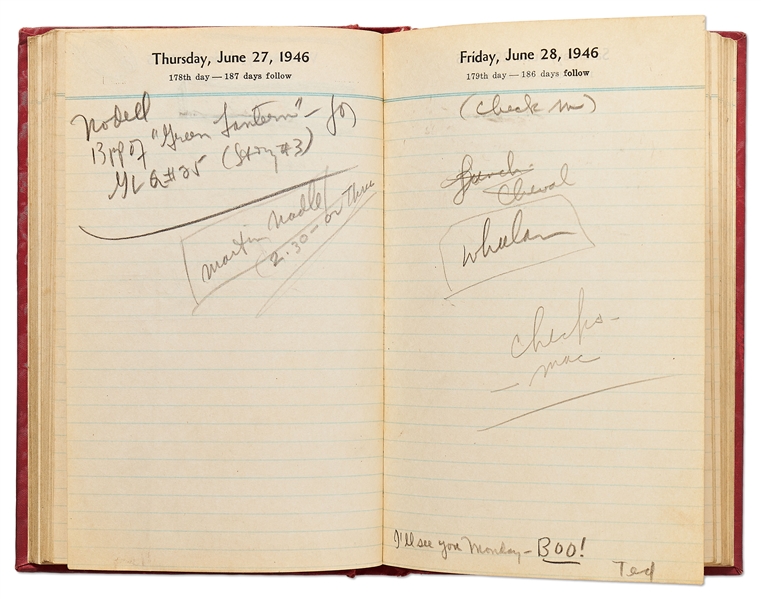 Thursday, June 27, 1946
178th day — 187 days follow
Nodell
13 pp of "Green Lantern" — for
GLQ #25 (Story #3)
Martin Nadle
2:30 — or Thur
Friday, June 28, 1946
179th day — 186 days follow
(Check M)
Lunch
Cheval
Whelan
Checks —
— mac
I'll see you Monday — BOO!
Ted